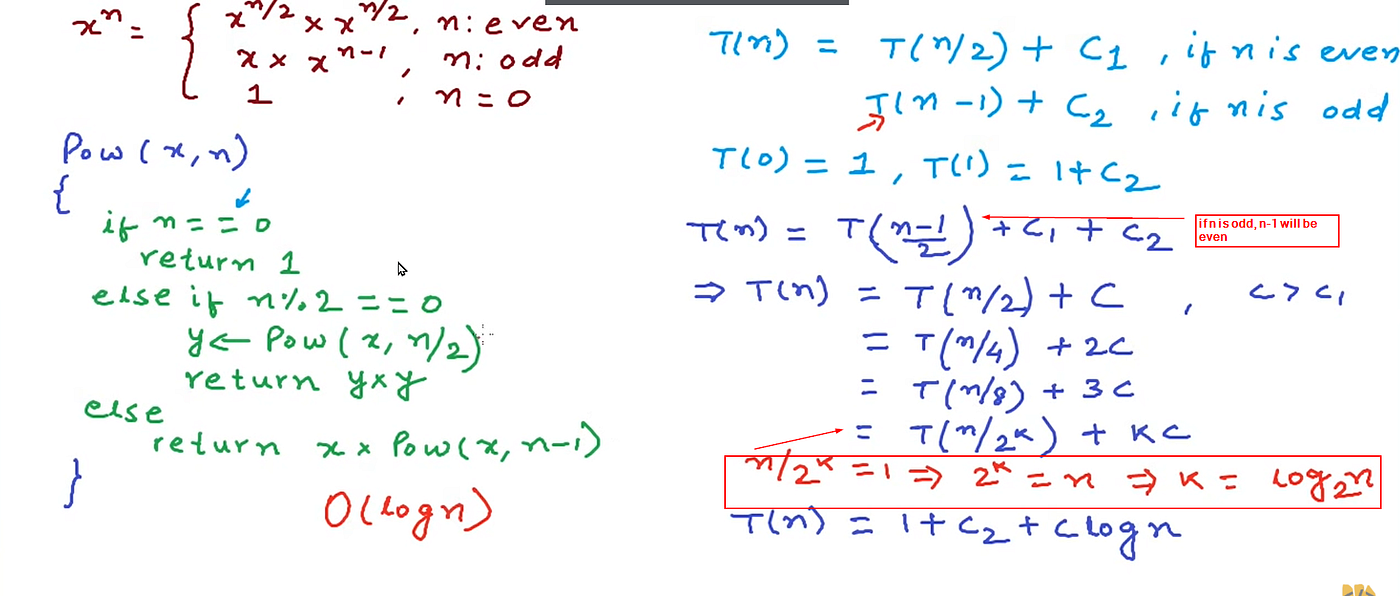 xⁿ = { x^(n/2) × x^(n/2), n: even
x × x^(n-1), n: odd
1 , n = 0
Pow(x, n)
{
if n == 0
return 1
else if n%2 == 0
y ← Pow(x, n/2)
return y×y
else
return x × Pow(x, n-1)
}
O(log n)
T(n) = T(n/2) + C1 , if n is even
T(n-1) + C2 , if n is odd
T(0) = 1 , T(1) = 1 + C2
T(n) = T((n-1)/2) + C1 + C2
if n is odd, n-1 will be
even
⇒ T(n) = T(n/2) + C , C > C1
= T(n/4) + 2C
= T(n/8) + 3C
= T(n/2^K) + KC
n/2^K = 1 ⇒ 2^K = n ⇒ K = log₂n
T(n) = 1 + C2 + C log n